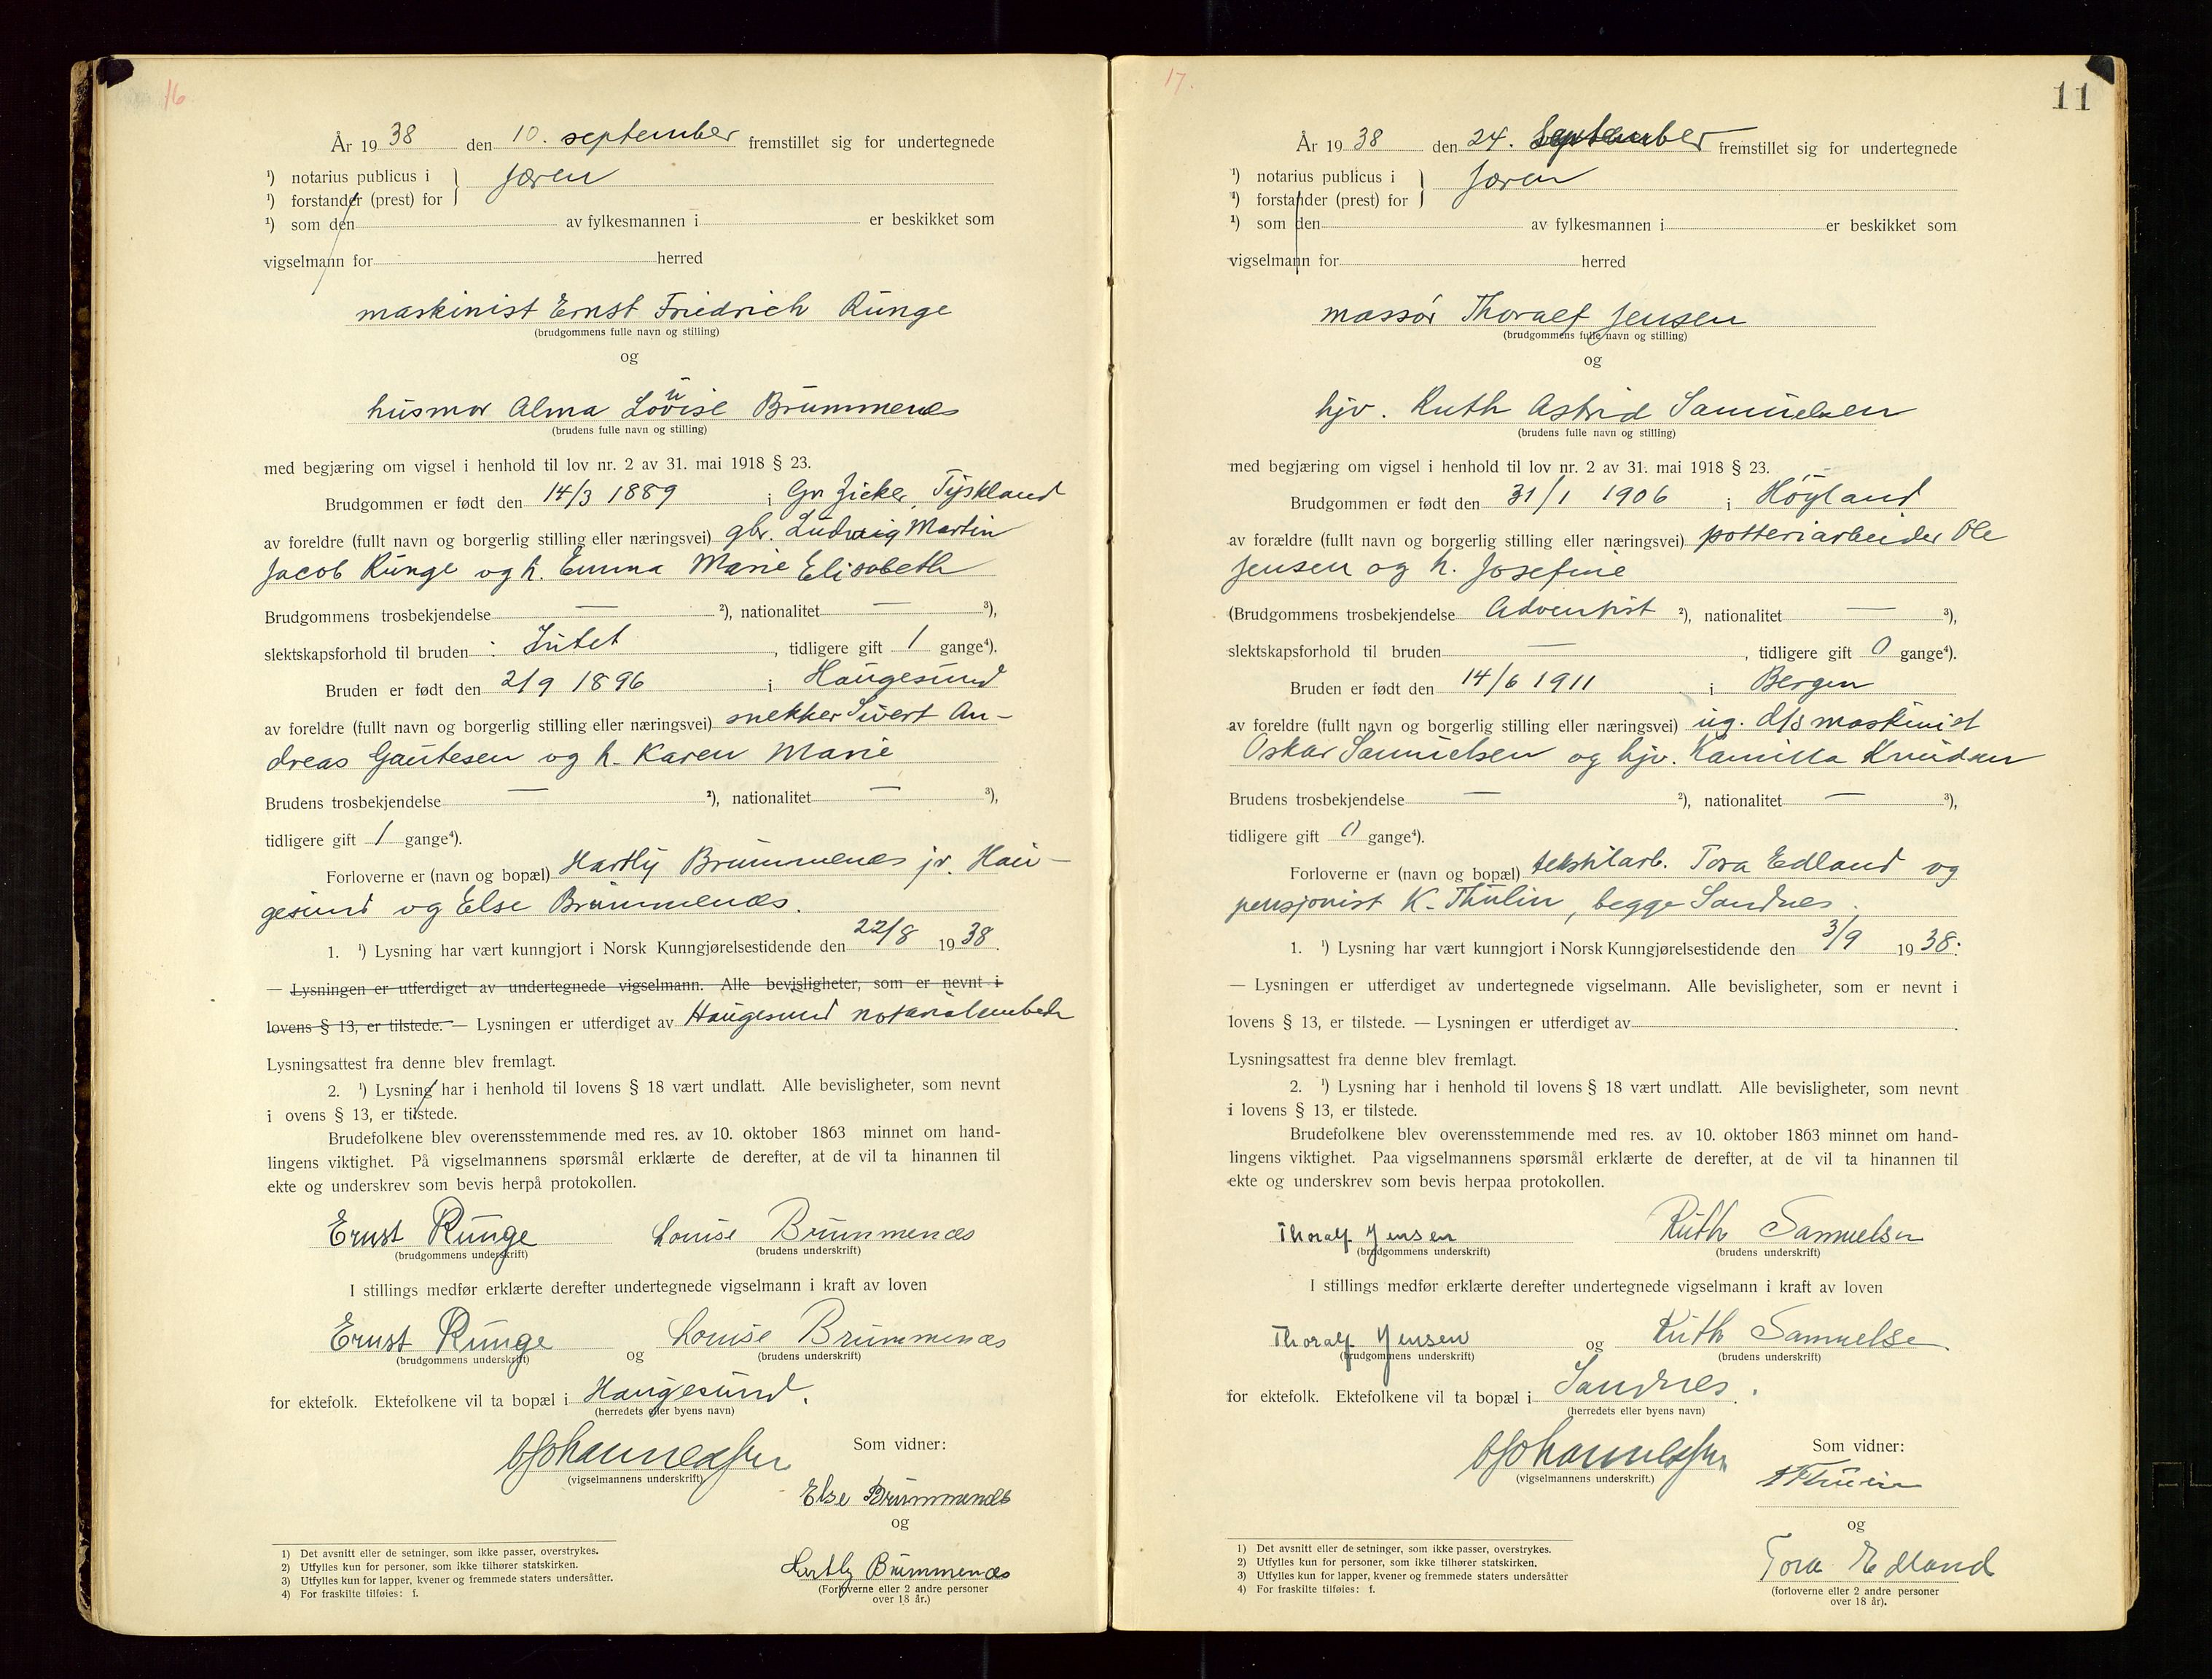 16.
År 1938 den 10. september fremstillet sig for undertegnede
¹) notarius publicus i } Jæren
¹) forstander (prest) for
¹) som den av fylkesmannen i er beskikket som
vigselmann for herred
maskinist Ernst Friedrich Runge
(brudgommens fulle navn og stilling)
og
u
husmor Alma Lovise Brummenæs
(brudens fulle navn og stilling)
med begjæring om vigsel i henhold til lov nr. 2 av 31. mai 1918 § 23.
Brudgommen er født den 14/3 1889 i Gr. Zicker, Tyskland
av foreldre (fullt navn og borgerlig stilling eller næringsvei) gbr. Ludwig Martin
Jacob Runge og h. Emma Marie Elisabeth
Brudgommens trosbekjendelse — ²), nationalitet — ³),
slektskapsforhold til bruden : Intet, tidligere gift 1 gange⁴).
Bruden er født den 2/9 1896 i Haugesund
av foreldre (fullt navn og borgerlig stilling eller næringsvei) snekker Sivert An-
dreas Gautesen og h. Karen Marie
Brudens trosbekjendelse — ²), nationalitet — ³),
tidligere gift 1 gange⁴).
Forloverne er (navn og bopæl) Hartly Brummenæs jr. Hau-
gesund og Else Brummenæs.
1. ¹) Lysning har vært kunngjort i Norsk Kunngjørelsestidende den 22/8 1938.
— Lysningen er utferdiget av undertegnede vigselmann. Alle bevisligheter, som er nevnt i
lovens § 13, er tilstede. — Lysningen er utferdiget av Haugesund notarialembede
Lysningsattest fra denne blev fremlagt.
2. ¹) Lysning har i henhold til lovens § 18 vært undlatt. Alle bevisligheter, som nevnt
i ovens § 13, er tilstede.
Brudefolkene blev overensstemmende med res. av 10. oktober 1863 minnet om hand-
lingens viktighet. På vigselmannens spørsmål erklærte de derefter, at de vil ta hinannen til
ekte og underskrev som bevis herpå protokollen.
Ernst Runge Louise Brummenæs
(brudgommens underskrift) (brudens underskrift)
I stillings medfør erklærte derefter undertegnede vigselmann i kraft av loven
Ernst Runge og Louise Brummenæs
(brudgommens underskrift) (brudens underskrift)
for ektefolk. Ektefolkene vil ta bopæl i Haugesund.
(herredets eller byens navn)
Johannessen
(vigselmannens underskrift)
Som vidner:
Else Brummenæs
og
Hartly Brummenæs
(Forloverne eller 2 andre personer
over 18 år.)
1) Det avsnitt eller de setninger, som ikke passer, overstrykes.
2) Utfylles kun for personer, som ikke tilhører statskirken.
3) Utfylles kun for lapper, kvener og fremmede staters undersåtter.
4) For fraskilte tilføies: f.
17.
11
År 1938 den 24. September fremstillet sig for undertegnede
¹) notarius publicus i } Jæren
¹) forstander (prest) for
¹) som den av fylkesmannen i er beskikket som
vigselmann for herred
massør Thoralf Jensen
(brudgommens fulle navn og stilling)
og
hjv. Ruth Astrid Samuelsen
(brudens fulle navn og stilling)
med begjæring om vigsel i henhold til lov nr. 2 av 31. mai 1918 § 23.
Brudgommen er født den 31/1 1906 i Høyland
av forældre (fullt navn og borgerlig stilling eller næringsvei) potteriarbeider Ole
Jensen og h. Josefine
(Brudgommens trosbekjendelse Adventist ²), nationalitet — ³),
slektskapsforhold til bruden —, tidligere gift 0 gange⁴).
Bruden er født den 14/6 1911 i Bergen
av foreldre (fullt navn og borgerlig stilling eller næringsvei) ug. d/s maskinist
Oskar Samuelsen og hjv. Kamilla Knudsen
Brudens trosbekjendelse — ²), nationalitet — ³),
tidligere gift 0 gange⁴).
Forloverne er (navn og bopæl) tekstilarb. Tora Edland og
pensjonist K. Thulin, begge Sandnes.
1. ¹) Lysning har vært kunngjort i Norsk Kunngjørelsestidende den 3/9 1938.
— Lysningen er utferdiget av undertegnede vigselmann. Alle bevisligheter, som er nevnt i
lovens § 13, er tilstede. — Lysningen er utferdiget av
Lysningsattest fra denne blev fremlagt.
2. ¹) Lysning har i henhold til lovens § 18 vært undlatt. Alle bevisligheter, som nevnt
i lovens § 13, er tilstede.
Brudefolkene blev overensstemmende med res. av 10. oktober 1863 minnet om hand-
lingens viktighet. Paa vigselmannens spørsmål erklærte de derefter, at de vil ta hinannen til
ekte og underskrev som bevis herpaa protokollen.
Thoralf Jensen Ruth Samuelsen
(brudgommens underskrift) (brudens underskrift)
I stillings medfør erklærte derefter undertegnede vigselmann i kraft av loven
Thoralf Jensen og Ruth Samuelse
(brudgommens underskrift) (brudens underskrift)
for ektefolk. Ektefolkene vil ta bopæl i Sandnes.
(herredets eller byens navn)
Johannessen
(vigselmannens underskrift.)
Som vidner:
K Thulin
og
Tora Edland
(forloverne eller 2 andre personer
over 18 år).
1) Det avsnitt eller de setninger, som ikke passer, overstrykes.
2) Utfylles kun for personer, som ikke tilhører statskirken.
3) Utfylles kun for lapper, kvener og fremmede staters undersåtter
4) For fraskilte tilføies: f.